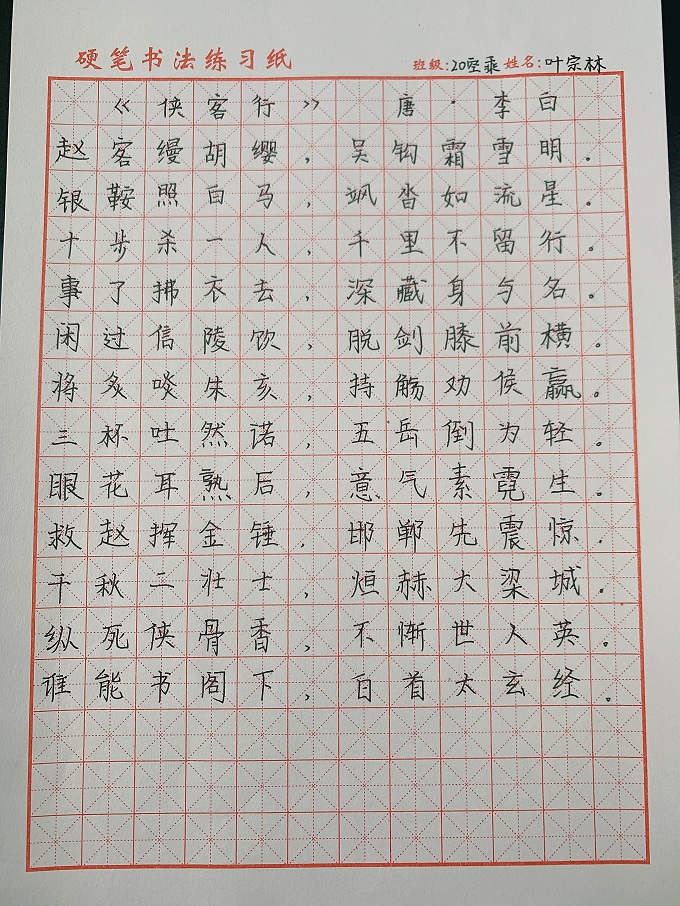 硬笔书法练习纸 班级:20空乘 姓名:叶宗林
《侠客行》 唐·李白
赵客缦胡缨,吴钩霜雪明。
银鞍照白马,飒沓如流星。
十步杀一人,千里不留行。
事了拂衣去,深藏身与名。
闲过信陵饮,脱剑膝前横。
将炙啖朱亥,持觞劝侯赢。
三杯吐然诺,五岳倒为轻。
眼花耳熟后,意气素霓生。
救赵挥金锤,邯郸先震惊.
千秋二壮士,烜赫大梁城.
纵死侠骨香,不惭世人英。
谁能书阁下,白首太玄经。